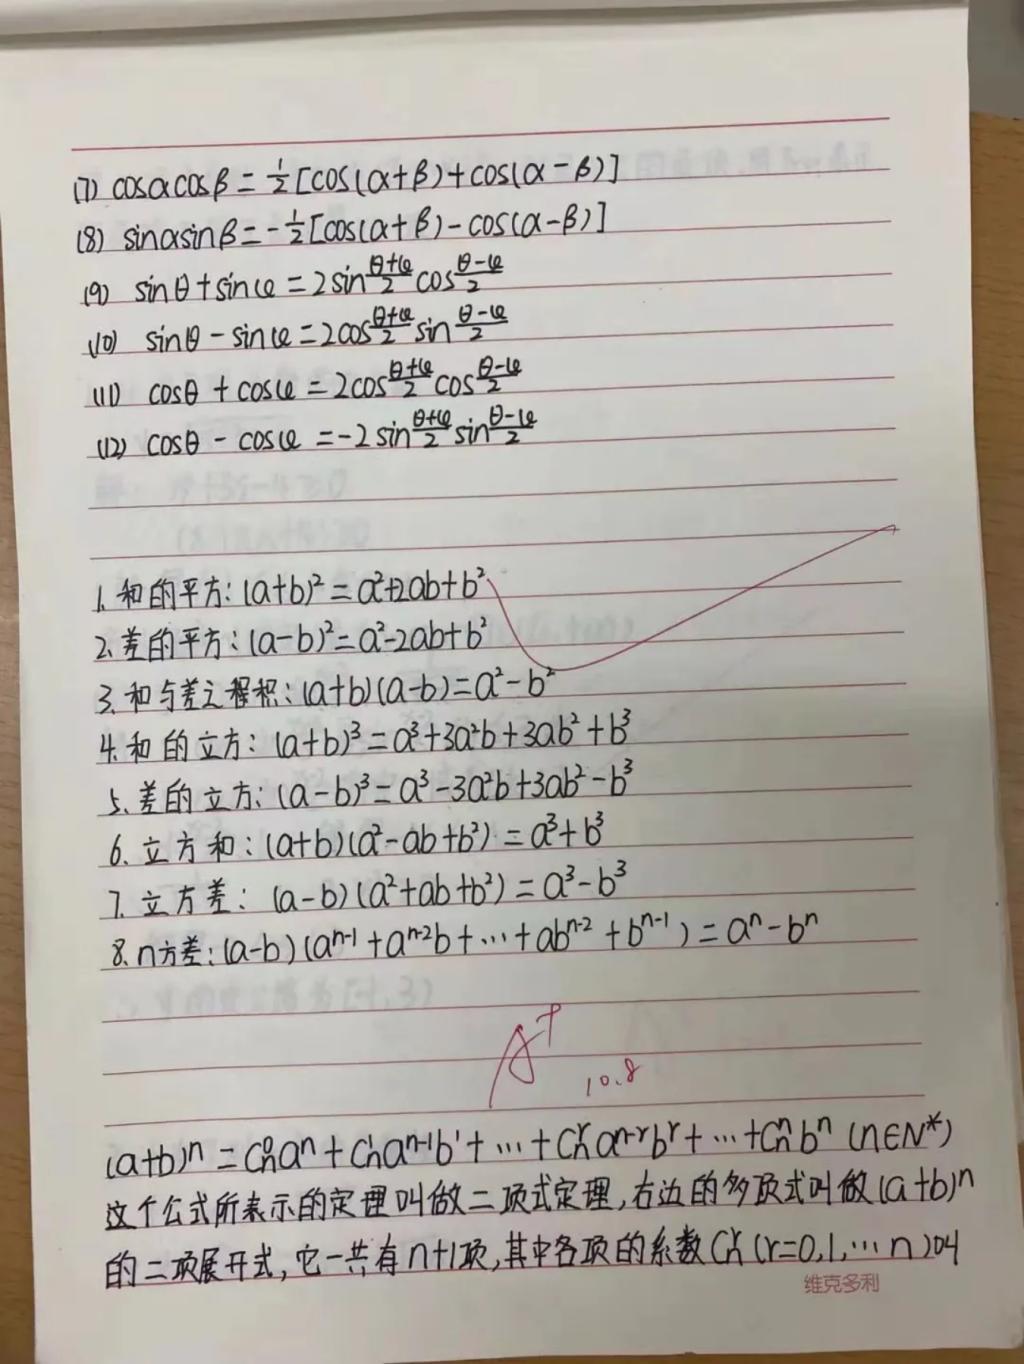 (7) cosαcosβ=½[cos(α+β)+cos(α-β)]
(8) sinαsinβ=-½[cos(α+β)-cos(α-β)]
(9) sinθ+sinφ=2sin(θ+φ)/2 cos(θ-φ)/2
(10) sinθ-sinφ=2cos(θ+φ)/2 sin(θ-φ)/2
(11) cosθ+cosφ=2cos(θ+φ)/2 cos(θ-φ)/2
(12) cosθ-cosφ=-2sin(θ+φ)/2 sin(θ-φ)/2
1.和的平方:(a+b)²=a²+2ab+b²
2.差的平方:(a-b)²=a²-2ab+b²
3.和与差之程积:(a+b)(a-b)=a²-b²
4.和的立方:(a+b)³=a³+3a²b+3ab²+b³
5.差的立方:(a-b)³=a³-3a²b+3ab²-b³
6.立方和:(a+b)(a²-ab+b²)=a³+b³
7.立方差:(a-b)(a²+ab+b²)=a³-b³
8.n方差:(a-b)(aⁿ⁻¹+aⁿ⁻²b+…+abⁿ⁻²+bⁿ⁻¹)=aⁿ-bⁿ
A⁺
10.8
(a+b)ⁿ=Cₙ⁰aⁿ+Cₙ¹aⁿ⁻¹b¹+…+Cₙʳaⁿ⁻ʳbʳ+…+Cₙⁿbⁿ(n∈N*)
这个公式所表示的定理叫做二项式定理,右边的多项式叫做(a+b)ⁿ
的二项展开式,它一共有n+1项,其中各项的系数Cₙʳ(r=0,1,…n)叫
维克多利